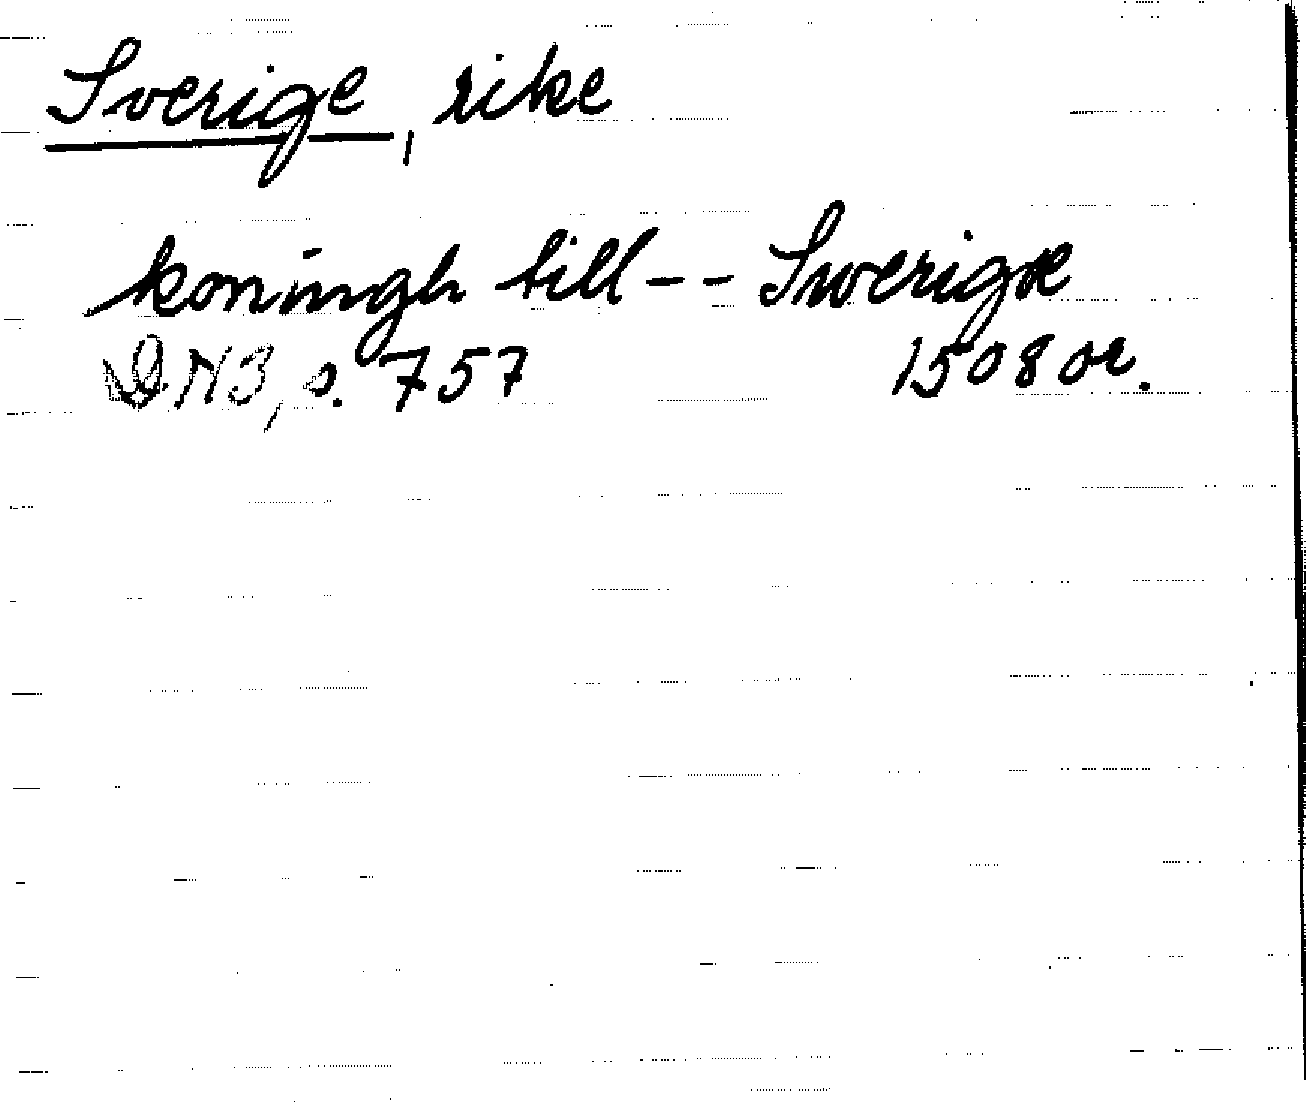 Sverige, rike
koningh till -- Swerigæ
DN3, s. 757 1508 or.